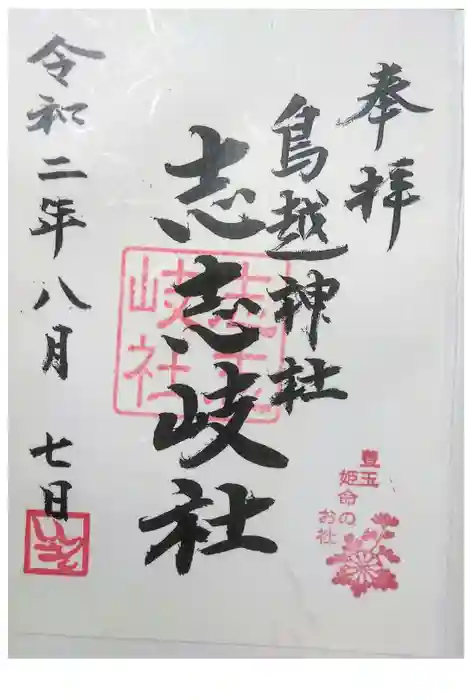 奉拝
鳥越神社
志志岐社
令和二年八月 七日
志志岐社
豊玉
姫命の
お社